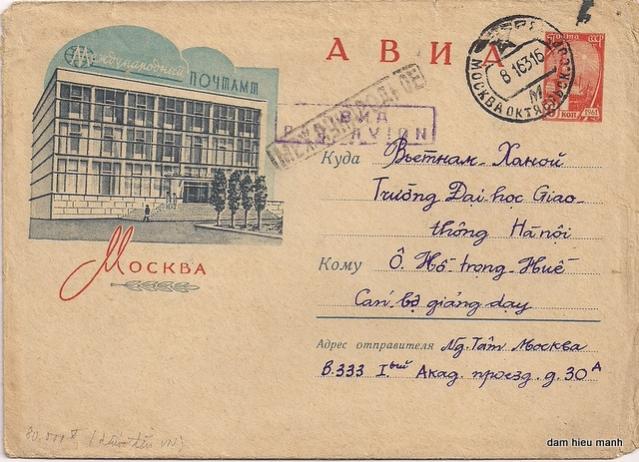 Международный
ПОЧТАМТ
АВИА
8 1 63 16
МОСКВА ОКТЯБРЬСК.
М
ПОЧТА СССР
6 КОП
1961
МЕЖДУНАРОДНОЕ
АВИА
PAR AVION
Куда Вьетнам - Ханой
Trường Đại học Giao-
thông Hà nội
Кому Ô. Hồ trọng Huế
Cán bộ giảng dạy
Адрес отправителя Ng. Tâm Москва
В.333 Iый Акад. проезд. д. 30А
Москва
80.000đ
dam hieu manh